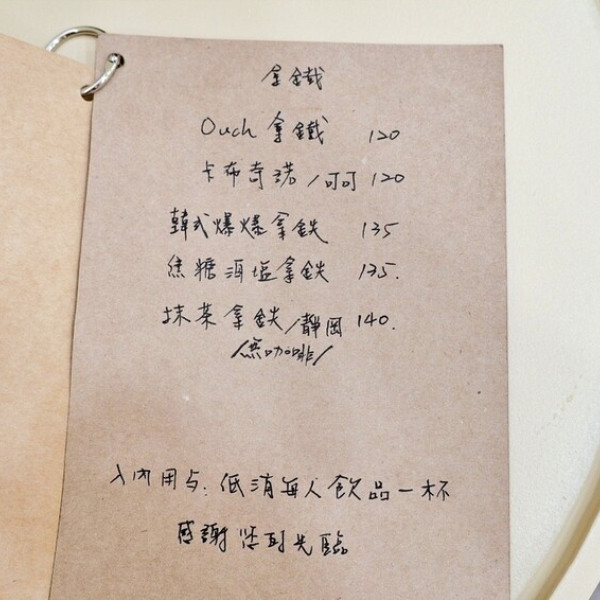 拿鐵
Ouch 拿鐵 120
卡布奇諾/可可 120
韓式爆爆拿鉄 135
焦糖海塩拿鉄 135.
抹茶拿鉄/靜岡 140.
/無咖啡/
入內用点:低消每人飲品一杯
感謝您的光臨